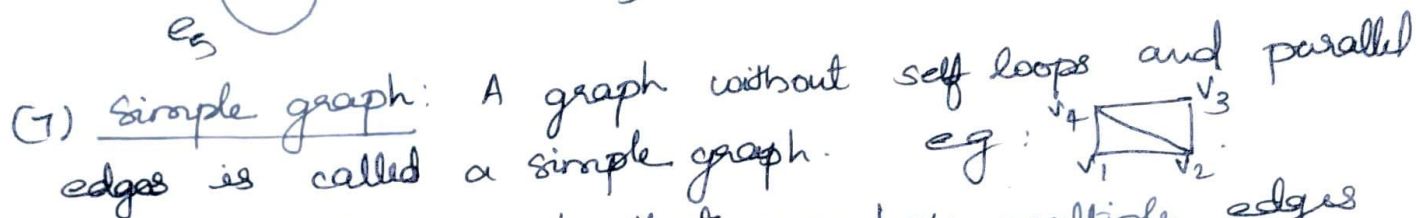 e5
(7) Simple graph: A graph without self loops and parallel
edges is called a simple graph. eg: V4 V3
V1 V2
edges